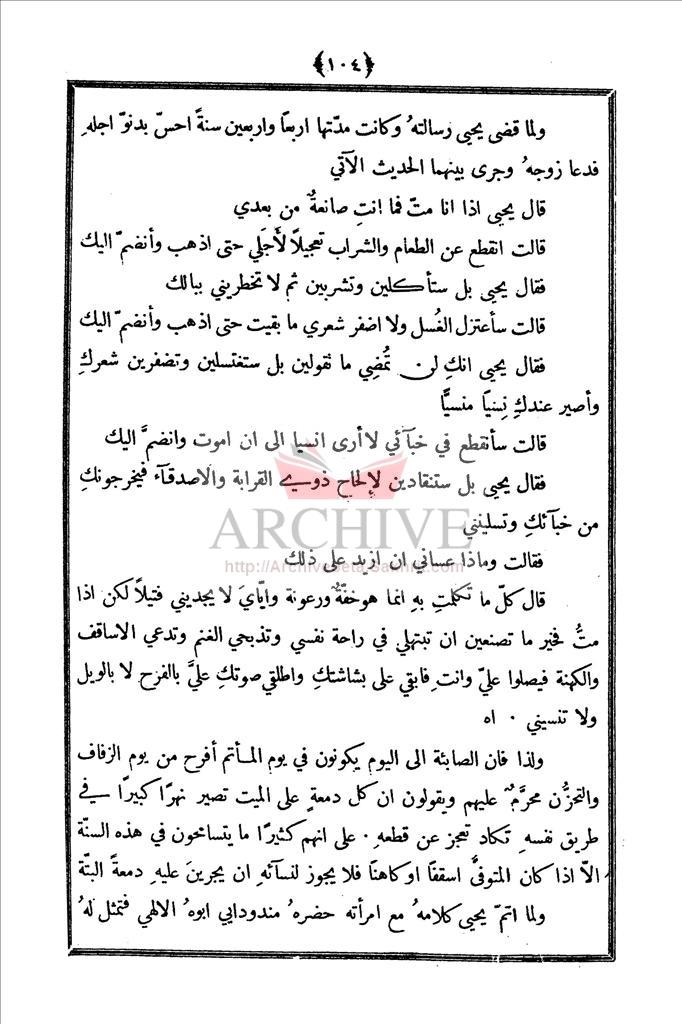 ﴿١٠٤﴾
ولما قضى يحيى رسالتهُ وكانت مدّتها اربعًا واربعين سنةً احسّ بدنوّ اجلهِ
فدعا زوجهُ وجرى بينهما الحديث الآتي
قال يحيى اذا انا متّ فما انتِ صانعةٌ من بعدي
قالت انقطع عن الطعام والشراب تعجيلاً لأَجَلي حتى اذهب وأنضمّ اليك
فقال يحيى بل ستأكلين وتشربين ثم لا تخطريني ببالك
قالت سأعتزل الغُسل ولا اضفر شعري ما بقيت حتى اذهب وأنضمّ اليك
فقال يحيى انكِ لن تُمضِي ما تقولين بل ستغتسلين وتضفرين شعركِ
وأصير عندكِ نِسيًا منسيًّا
قالت سأنقطع في خبآئي لا أرى انسيا الى ان اموت وانضمَّ اليك
فقال يحيى بل ستنقادين لإلحاح ذوي القرابة والاصدقآء فيخرجونكِ
من خبآئكِ وتسليني
ARCHIVE
فقالت وماذا عساني ان ازيد على ذلك
قال كلّ ما تكلمتِ بهِ انما هو خفّةٌ ورعونة وايّايَ لا يجديني فتيلاً لكن اذا
متُّ فخير ما تصنعين ان تبتهلي في راحة نفسي وتذبحي الغنم وتدعي الاساقف
والكهنة فيصلوا عليّ وانتِ فابقي على بشاشتكِ واطلقي صوتكِ عليَّ بالفرح لا بالويل
ولا تنسيني ٠ اه
ولذا فان الصابئة الى اليوم يكونون في يوم المأتم أفرح من يوم الزفاف
والتحزُّن محرَّمٌ عليهم ويقولون ان كل دمعةٍ على الميت تصير نهرًا كبيرًا في
طريق نفسهِ تكاد تعجز عن قطعهِ ٠ على انهم كثيرًا ما يتسامحون في هذه السنّة
الاّ اذا كان المتوفَّى اسقفًا او كاهنًا فلا يجوز لنسآئهِ ان يجرينَ عليهِ دمعةً البتّة
ولما اتمّ يحيى كلامهُ مع امرأته حضرهُ مندودايي ابوهُ الالهي فتمثل لهُ